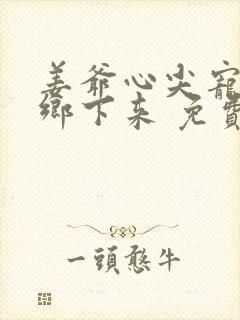 姜爺心尖寵
鄉下來 免費
一頭憨牛